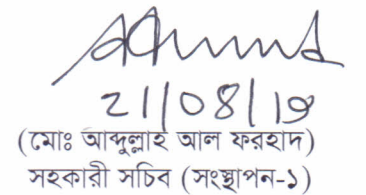 21/08/19
(মোঃ আব্দুল্লাহ আল ফরহাদ)
সহকারী সচিব (সংস্থাপন-১)